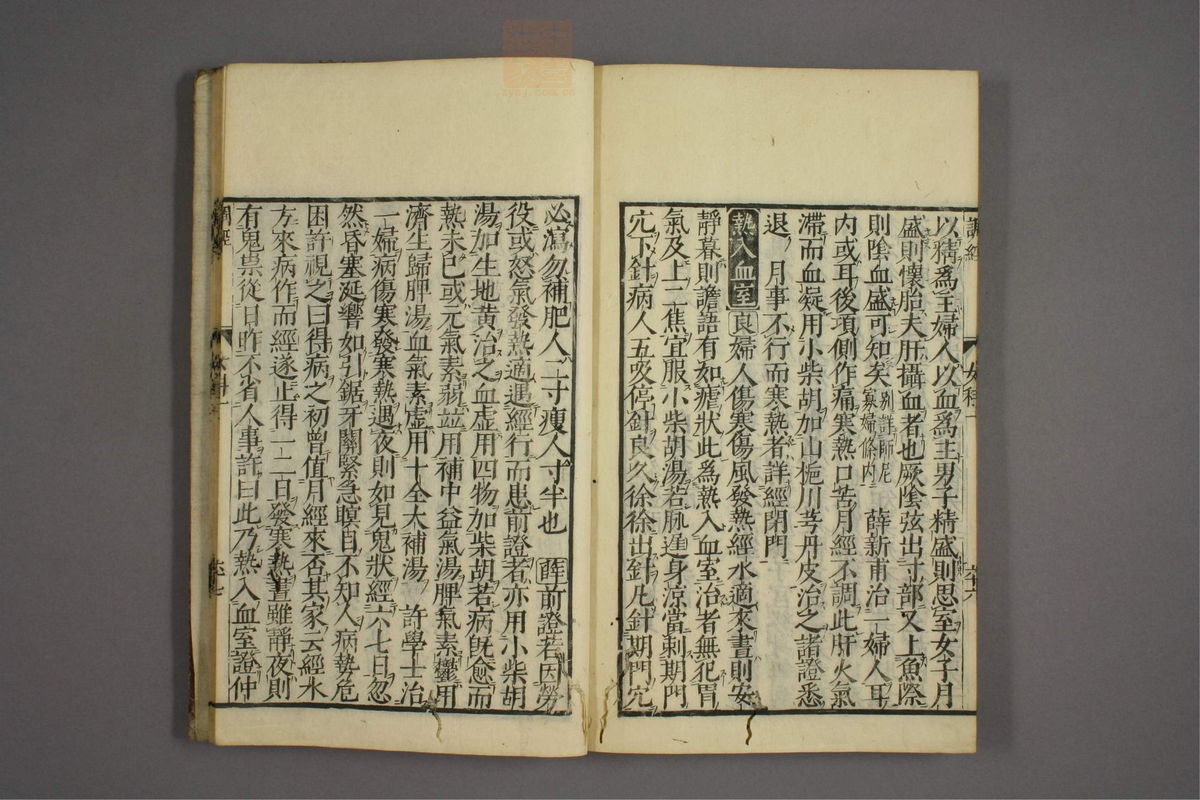 調經
女科一
六十六
以精爲主婦人以血爲主男子精盛則思室女子月
盛則懷胎夫肝攝血者也厥陰弦出寸部又上魚際
則陰血盛可知矣別詳師尼寡婦條內 薛新甫治一婦人耳
內或耳後項側作痛寒熱口苦月經不調此肝火氣
滯而血凝用小柴胡加山梔川芎丹皮治之諸證悉
退 月事不行而寒熱者詳經閉門
熱入血室 良婦人傷寒傷風發熱經水適來晝則安
靜暮則譫語有如瘧狀此爲熱入血室治者無犯胃
氣及上二焦宜服小柴胡湯若脉遲身涼當刺期門
穴下針病人五吸停針良久徐徐出針凡針期門穴
必瀉勿補肥人二寸瘦人寸半也 薛前證若因勞
役或怒氣發熱適遇經行而患前證者亦用小柴胡
湯加生地黃治之血虛用四物加柴胡若病旣愈而
熱未已或元氣素弱竝用補中益氣湯脾氣素鬱用
濟生歸脾湯血氣素虛用十全大補湯 許學士治
一婦病傷寒發寒熱遇夜則如見鬼狀經六七日忽
然昏塞涎響如引鋸牙關緊急瞑目不知人病勢危
困許視之曰得病之初曾值月經來否其家云經水
方來病作而經遂止得一二日發寒熱晝雖靜夜則
有鬼祟從日昨不省人事許曰此乃熱入血室證仲
調經